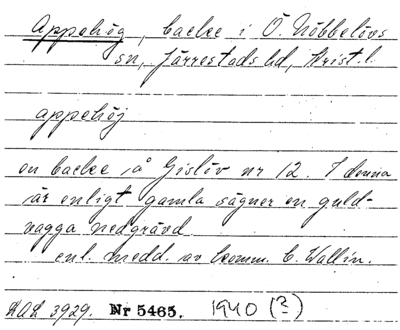 Appehög, backe i Ö. Nöbbelövs
sn, Järrestads hd, Krist. l.
appehöj
en backe på Gislöv nr 12. I denna
är enligt gamla sägner en guld-
vagga nedgrävd
enl. medd. av komm. C. Wallin.
LAL 3929. Nr 5465. 1940 (?)